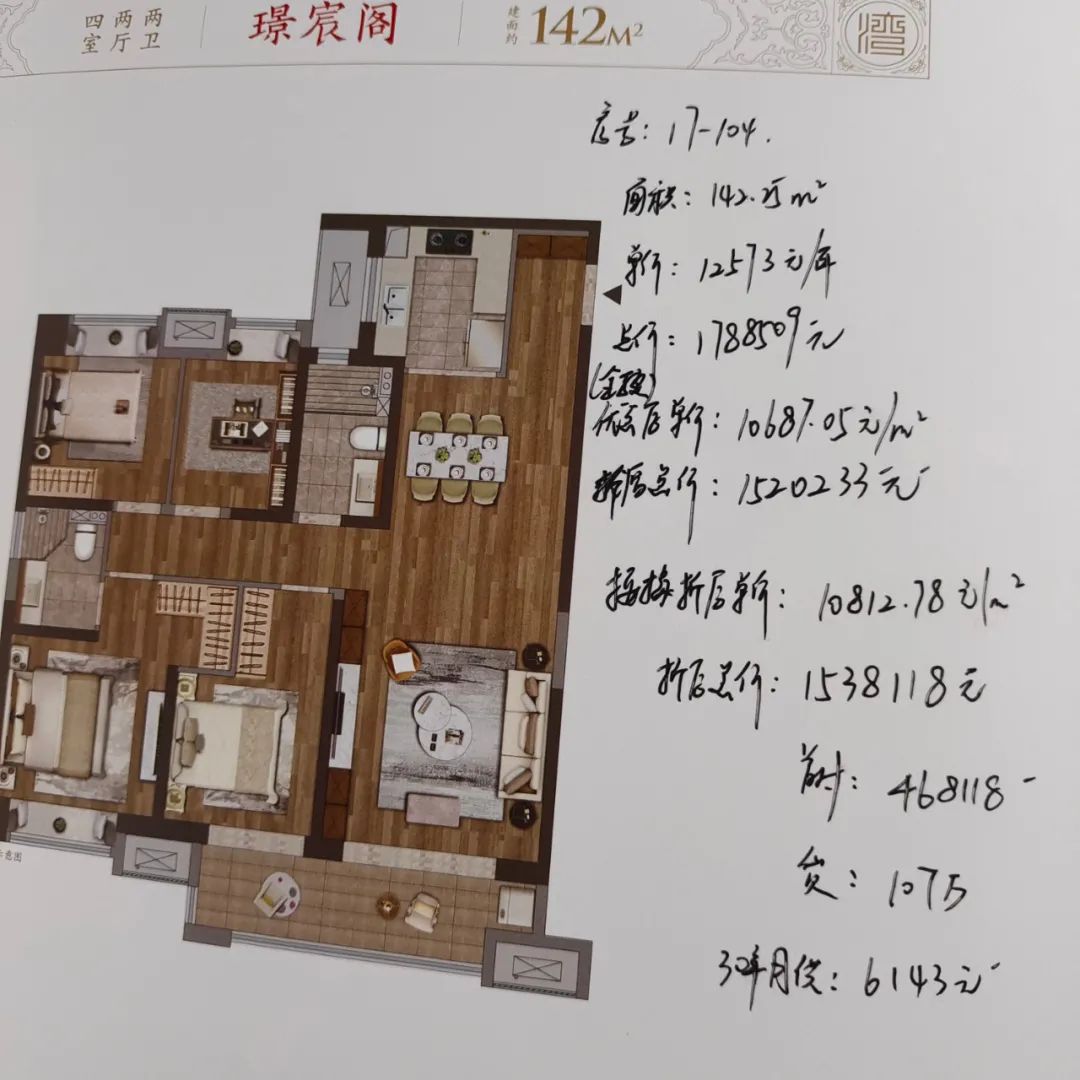 四室 两厅 两卫
璟宸阁
建面约 142M²
湾
房号: 17-104.
面积: 142.25m²
单价: 12573元/
总价: 1788509元
(全款)
优惠后单价: 10687.05元/m²
折后总价: 1520233元
按揭折后单价: 10812.78元/m²
折后总价: 1538118元
首付: 468118
贷: 107万
30年月供: 6143元
示意图